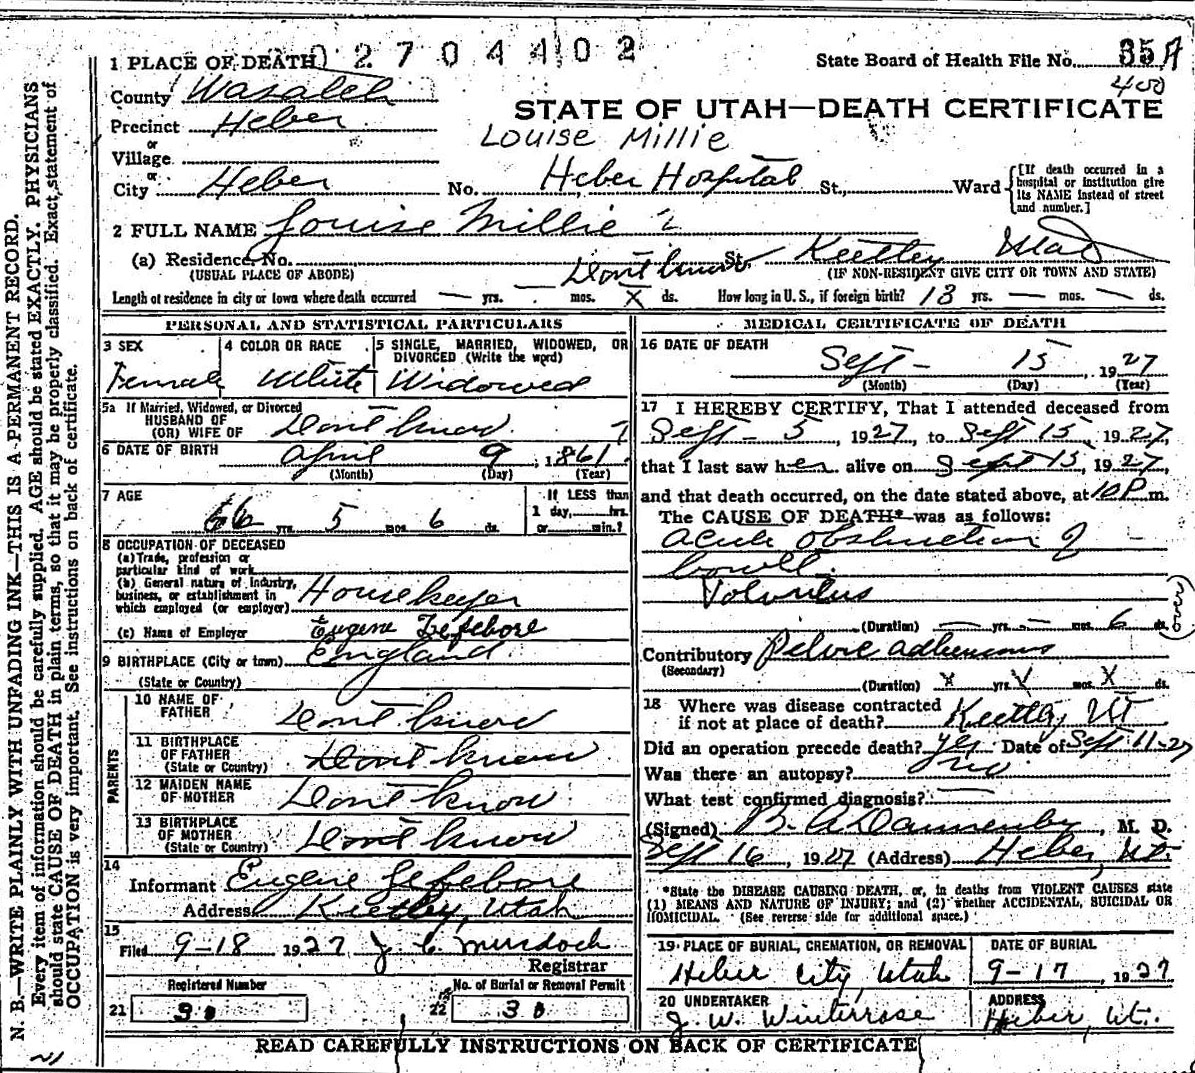 02704402
1 PLACE OF DEATH
State Board of Health File No. 35A
400
County Wasatch
STATE OF UTAH—DEATH CERTIFICATE
Precinct Heber
Louise Millie
or
Village
or
City Heber No. Heber Hospital St., Ward
[If death occurred in a hospital or institution give its NAME instead of street and number.]
2 FULL NAME Louise Millie
(a) Residence, No. Dont know St. Keetley Utah
(USUAL PLACE OF ABODE) (IF NON-RESIDENT GIVE CITY OR TOWN AND STATE)
Length of residence in city or town where death occurred — yrs. — mos. X ds. How long in U. S., if foreign birth? 13 yrs. — mos. — ds.
PERSONAL AND STATISTICAL PARTICULARS
3 SEX 4 COLOR OR RACE 5 SINGLE, MARRIED, WIDOWED, OR DIVORCED (Write the word)
Female White Widowed
5a If Married, Widowed, or Divorced
HUSBAND OF
(OR) WIFE OF Dont know
6 DATE OF BIRTH April 9, 1861
(Month) (Day) (Year)
7 AGE 66 yrs. 5 mos. 6 ds.
If LESS than
1 day, hrs.
or min.?
8 OCCUPATION OF DECEASED
(a) Trade, profession or
particular kind of work
(b) General nature of industry,
business, or establishment in
which employed (or employer) Housekeeper
(c) Name of Employer Eugene Lefebore
9 BIRTHPLACE (City or town) England
(State or Country)
PARENTS
10 NAME OF
FATHER Dont know
11 BIRTHPLACE
OF FATHER Dont know
(State or Country)
12 MAIDEN NAME
OF MOTHER Dont know
13 BIRTHPLACE
OF MOTHER Dont know
(State or Country)
14
Informant Eugene Lefebore
Address Keetley, Utah
15
Filed 9-18 1927 J. C. Murdoch
Registrar
Registered Number No. of Burial or Removal Permit
21 30 22 30
MEDICAL CERTIFICATE OF DEATH
16 DATE OF DEATH
Sept - 15, 1927
(Month) (Day) (Year)
17 I HEREBY CERTIFY, That I attended deceased from
Sept - 5, 1927, to Sept 15, 1927,
that I last saw her alive on Sept 15, 1927,
and that death occurred, on the date stated above, at 10 P m.
The CAUSE OF DEATH* was as follows:
Acute Obstruction of
bowel.
Volvulus
(Duration) — yrs. — mos. 6 ds.
(over)
Contributory Pelvic adhesions
(Secondary)
(Duration) X yrs. X mos. X ds.
18 Where was disease contracted
if not at place of death? Keetley UT
Did an operation precede death? yes Date of Sept 11-27
Was there an autopsy? no
What test confirmed diagnosis? —
(Signed) B. A. Dannenberg, M. D.
Sept 16, 1927 (Address) Heber, Ut.
*State the DISEASE CAUSING DEATH, or, in deaths from VIOLENT CAUSES state
(1) MEANS AND NATURE OF INJURY; and (2) whether ACCIDENTAL, SUICIDAL OR
HOMICIDAL. (See reverse side for additional space.)
19 PLACE OF BURIAL, CREMATION, OR REMOVAL DATE OF BURIAL
Heber City, Utah 9-17, 1927
20 UNDERTAKER ADDRESS
J. W. Winterrose Heber, Ut.
READ CAREFULLY INSTRUCTIONS ON BACK OF CERTIFICATE
N. B.—WRITE PLAINLY WITH UNFADING INK—THIS IS A PERMANENT RECORD.
Every item of information should be carefully supplied. AGE should be stated EXACTLY. PHYSICIANS
should state CAUSE OF DEATH in plain terms, so that it may be properly classified. Exact statement of
OCCUPATION is very important. See instructions on back of certificate.